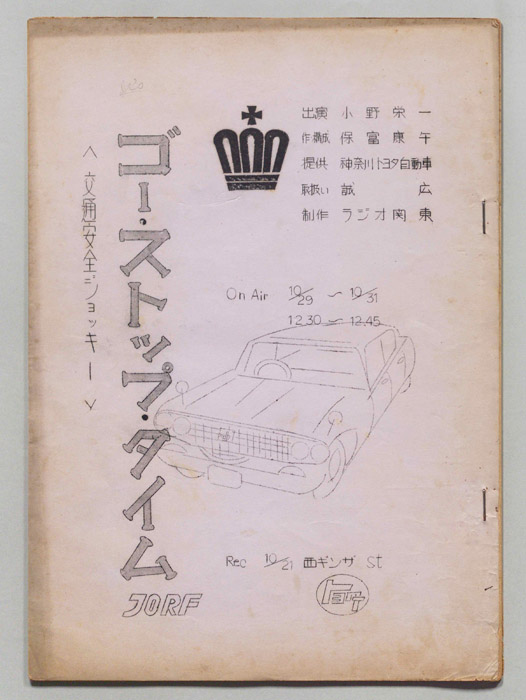 出演 小野栄一
作・構成 保富康午
提供 神奈川トヨタ自動車
取扱い 誠広
制作 ラジオ関東
ゴー・ストップ・タイム
＜交通安全ジョッキー＞
On Air 10/29 〜 10/31
12.30 〜 12.45
Rec 10/21 西ギンザ St
JORF
トヨタ